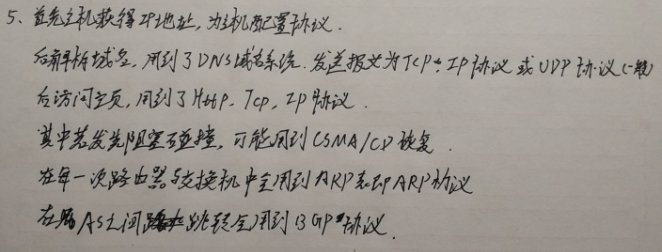 5、首先主机获得IP地址，为主机配置协议.
后解析域名，用到了DNS域名系统. 发送报文为TCP+IP协议或UDP协议(一般)
后访问主页，用到了Http. Tcp. IP协议.
其中若发生阻塞碰撞，可能用到CSMA/CD 恢复.
在每一次路由器与交换机中会用到ARP和 ARP协议
在 AS之间 跳转会用到BGP协议.